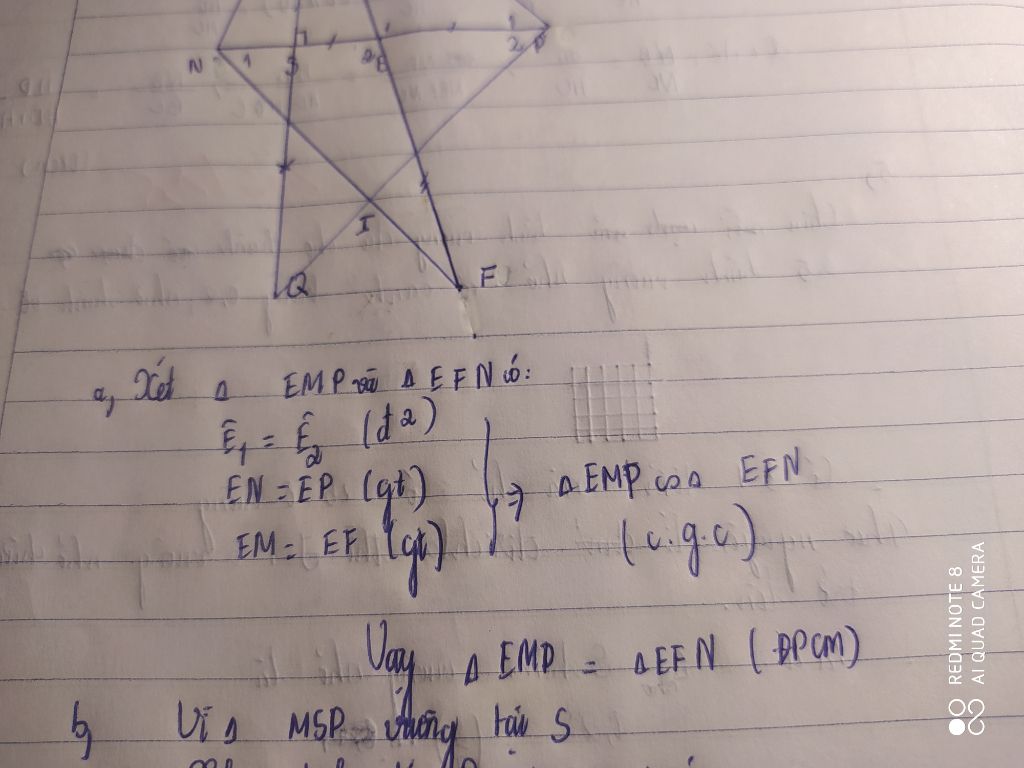 N 1 S 2 E 1 2 P
I
Q F
a, Xét Δ EMP và Δ EFN có:
Ê₁ = Ê₂ (đ²)
EN = EP (gt) ⇒ Δ EMP = Δ EFN
EM = EF (gt) (c.g.c)
Vậy Δ EMP = Δ EFN (ĐPCM)
b, Vì Δ MSP vuông tại S
REDMI NOTE 8
AI QUAD CAMERA